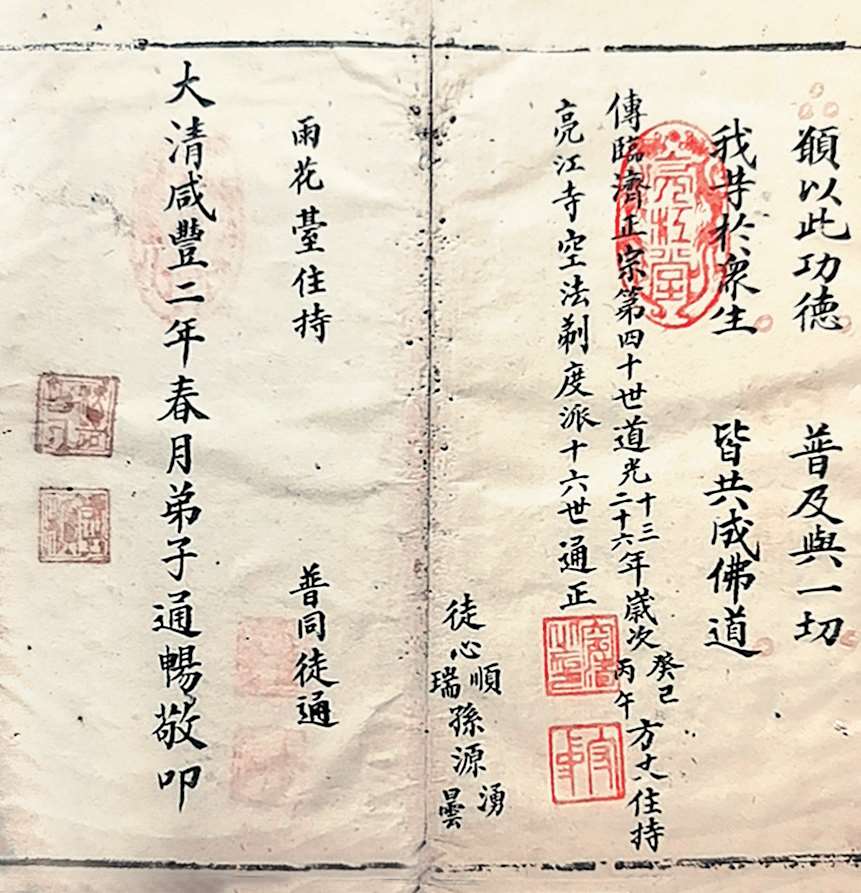 願以此功德　普及與一切
我等於衆生　皆共成佛道
傳臨濟正宗第四十世道光十三二十六年歲次癸巳丙午方丈住持
亮江寺空法剃度派十六世通正
徒心順瑞孫源湧曇
雨花臺住持　普同徒通
大清咸豐二年春月弟子通暢敬叩
亮江堂